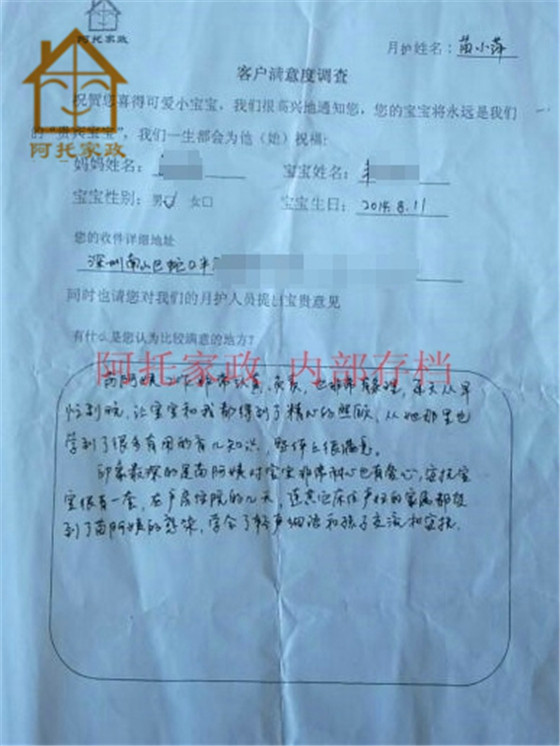 阿托家政
月护姓名：苗小萍
客户满意度调查
祝贺您喜得可爱小宝宝，我们很高兴地通知您，您的宝宝将永远是我们
的“贵兴宝宝”，我们一生都会为他（她）祝福：
阿托家政
妈妈姓名： 宝宝姓名：
宝宝性别：男☑ 女□ 宝宝生日：2014.8.11
您的收件详细地址
深圳南山区蛇口半
同时也请您对我们的月护人员提出宝贵意见
有什么是您认为比较满意的地方？
阿托家政 内部存档
苗阿姨工作非常认真，负责，也非常有条理，每天从早
忙到晚，让宝宝和我都得到了精心的照顾，从她那里也
学到了很多有用的育儿知识，整体上很满意。
印象最深的是苗阿姨对宝宝非常耐心也有爱心，安抚宝
宝很有一套，在产房住院的几天，连其它床位产妇的家属都受
到了苗阿姨的感染，学会了轻声细语和孩子交流和安抚。